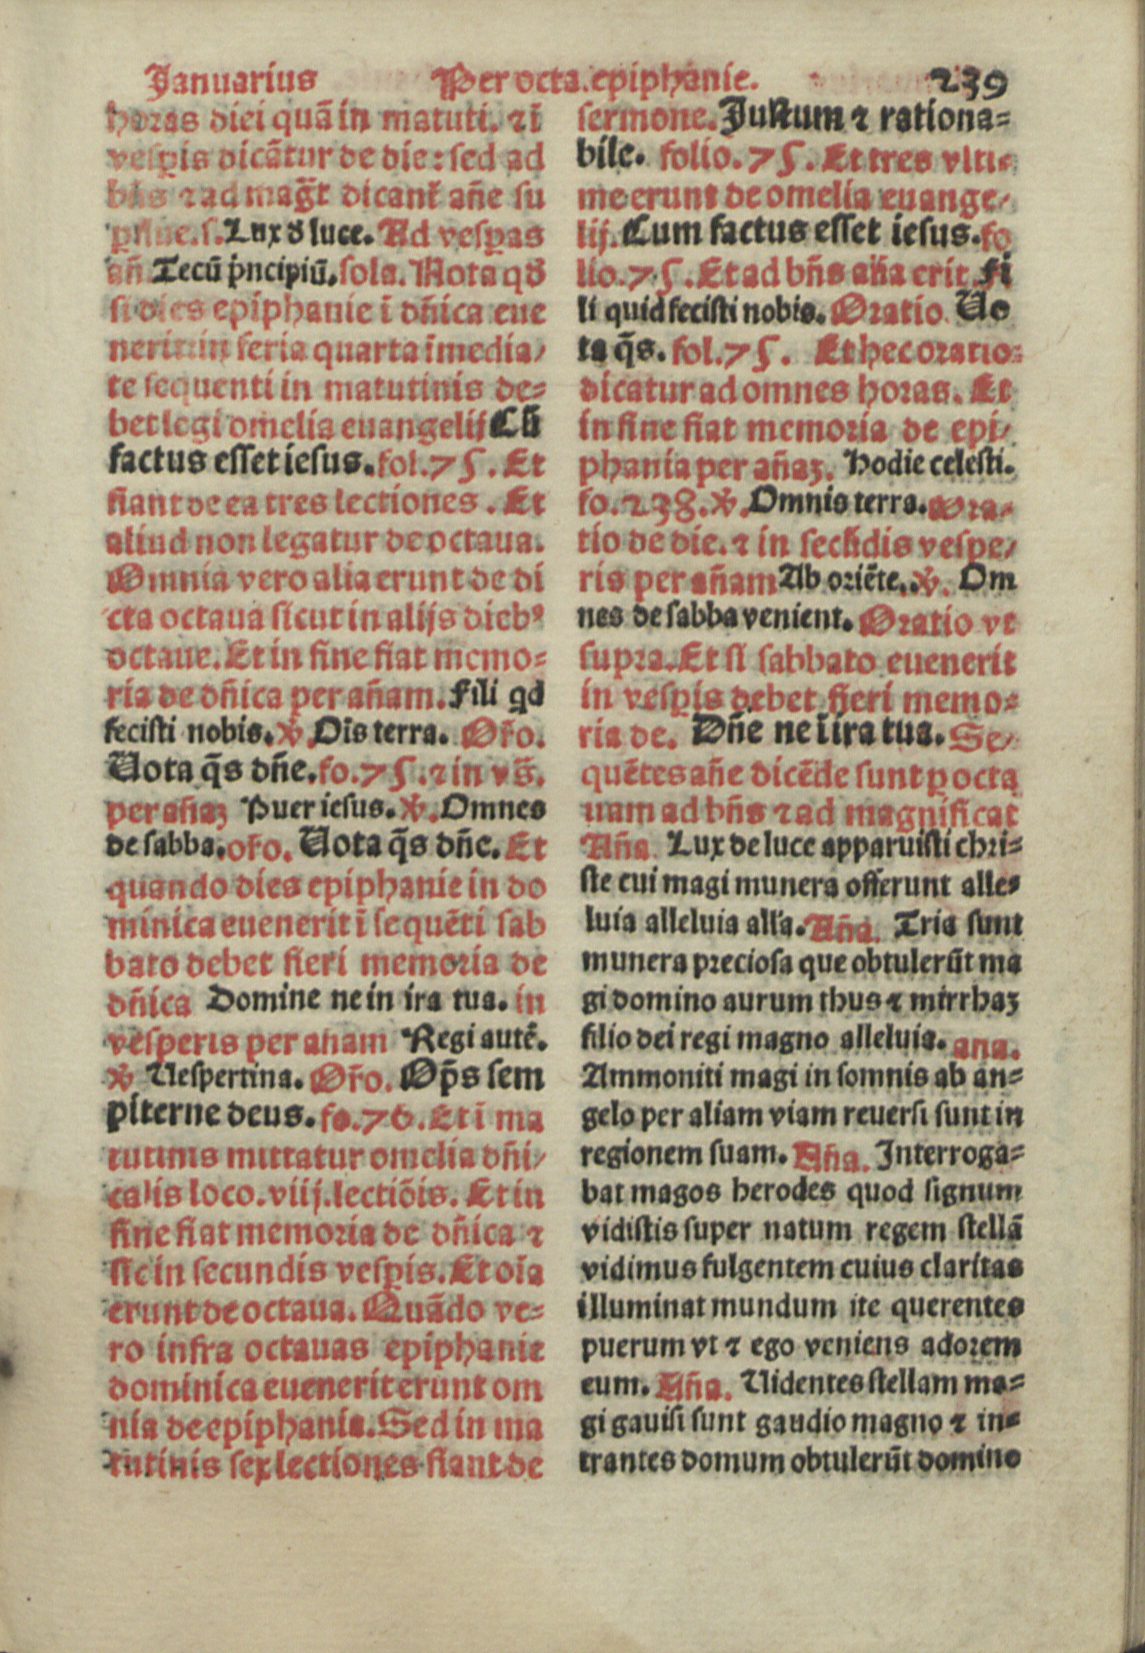 Januarius Per octa. epiphanie. 239
horas diei quā in matuti. ⁊ ī
vesp̄is dicātur de die: sed ad
bn̄s ⁊ ad mag̅t dicant̄ añe su
Lux d̄ luce. Ad vesp̄as
añ Tecū p̄ncipiū. sola. Nota qd̄
si dies epiphanie ī dñica eue
nerit: in feria quarta īmedia/
te sequenti in matutinis de=
bet legi omelia euangelij Cū
factus esset iesus. fol. 75. Et
fiant de ea tres lectiones. Et
aliud non legatur de octaua.
Omnia vero alia erunt de di
cta octaua sicut in alijs diebꝰ
octaue. Et in fine fiat memo=
ria de dñica per añam. Fili qd
fecisti nobis. ℣. Oīs terra. Oro.
Uota q̄s dñe. fo. 75. ⁊ in vs̄.
per añaꝫ Puer iesus. ℣. Omnes
de sabba. oro. Uota q̄s dñe. Et
quando dies epiphanie in do
minica euenerit ī sequēti sab
bato debet fieri memoria de
dñica Domine ne in ira tua. in
vesperis per anam Regi autē.
℣ Uespertina. Oro. Op̄s sem
piterne deus. fo. 76. Et ī ma
tutinis mittatur omelia dñi/
calis loco. viij. lectiōis. Et in
fine fiat memoria de dñica ⁊
sic in secundis vesp̄is. Et oīa
erunt de octaua. Quādo ve=
ro infra octauas epiphanie
dominica euenerit erunt om
nia de epiphania. Sed in ma
tutinis sex lectiones fiant de
sermone. Justum ⁊ rationa=
bile. folio. 75. Et tres vlti=
me erunt de omelia euange/
lij. Cum factus esset iesus. fo
lio. 75. Et ad bñs aña erit Fi
li quid fecisti nobis. Oratio Uo
ta q̄s. fol. 75. Et hec oratio
dicatur ad omnes horas. Et
in fine fiat memoria de epi/
phania per añaꝫ. Hodie celesti.
fo. 238. ℣. Omnis terra. Ora-
tio de die. ⁊ in secūdis vespe/
ris per añam Ab oriēte. ℣. Om
nes de sabba venient. Oratio vt
supra. Et si sabbato euenerit
in vesp̄is debet fieri memo=
ria de. Dñe ne ī ira tua. Se/
quētes añe dicēde sunt ꝑ octa
uam ad bñs ⁊ ad magnificat
Aña Lux de luce apparuisti chri=
ste cui magi munera offerunt alle=
luia alleluia alľa. Aña. Tria sunt
munera preciosa que obtulerūt ma
gi domino aurum thus ⁊ mirrhaꝫ
filio dei regi magno alleluia. ana.
Ammoniti magi in somnis ab an=
gelo per aliam viam reuersi sunt in
regionem suam. Aña. Interroga=
bat magos herodes quod signum
vidistis super natum regem stellā
vidimus fulgentem cuius claritas
illuminat mundum ite querentes
puerum vt ⁊ ego veniens adorem
eum. Aña. Uidentes stellam ma=
gi gauisi sunt gaudio magno ⁊ in=
trantes domum obtulerūt domino